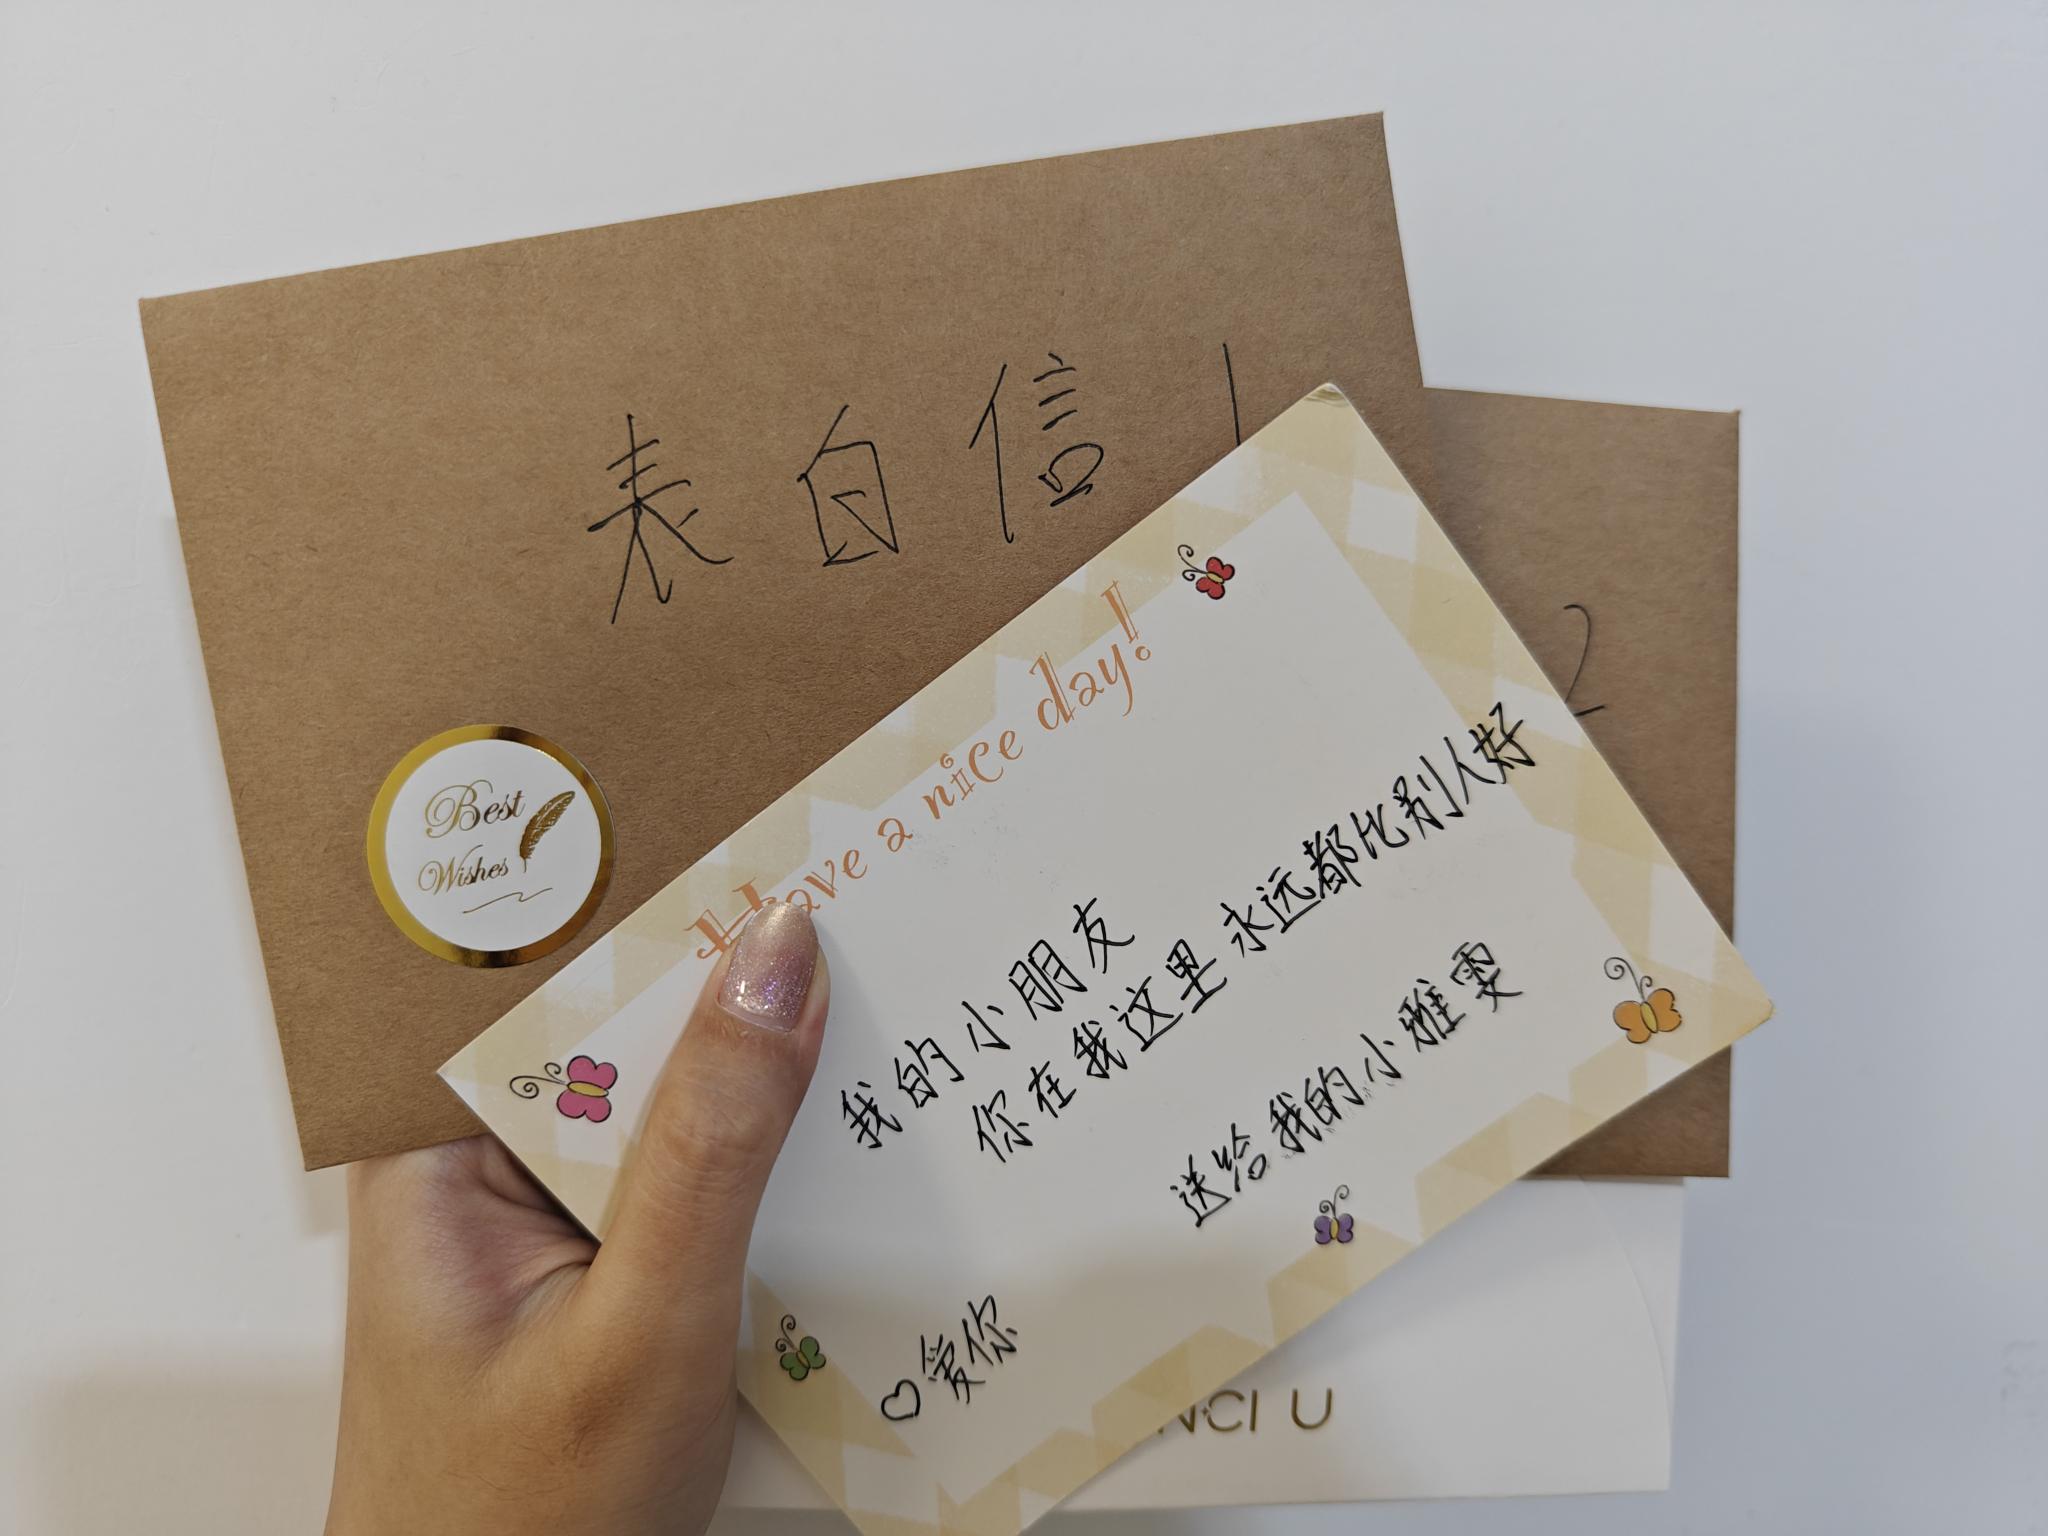 表白信 1
2
Best
Wishes
Have a nice day!
我的小朋友
你在我这里永远都比别人好
送给我的小雅雯
爱你
NCI U